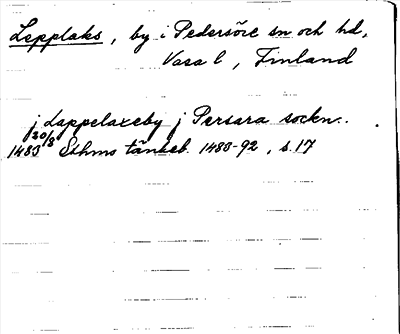 Lepplaks, by i Pedersöre sn och hd,
Vasa l, Finland
j Lappelaxeby j Persara sockn.
20/8
1483 Sthms tänkeb. 1483-92, s. 17